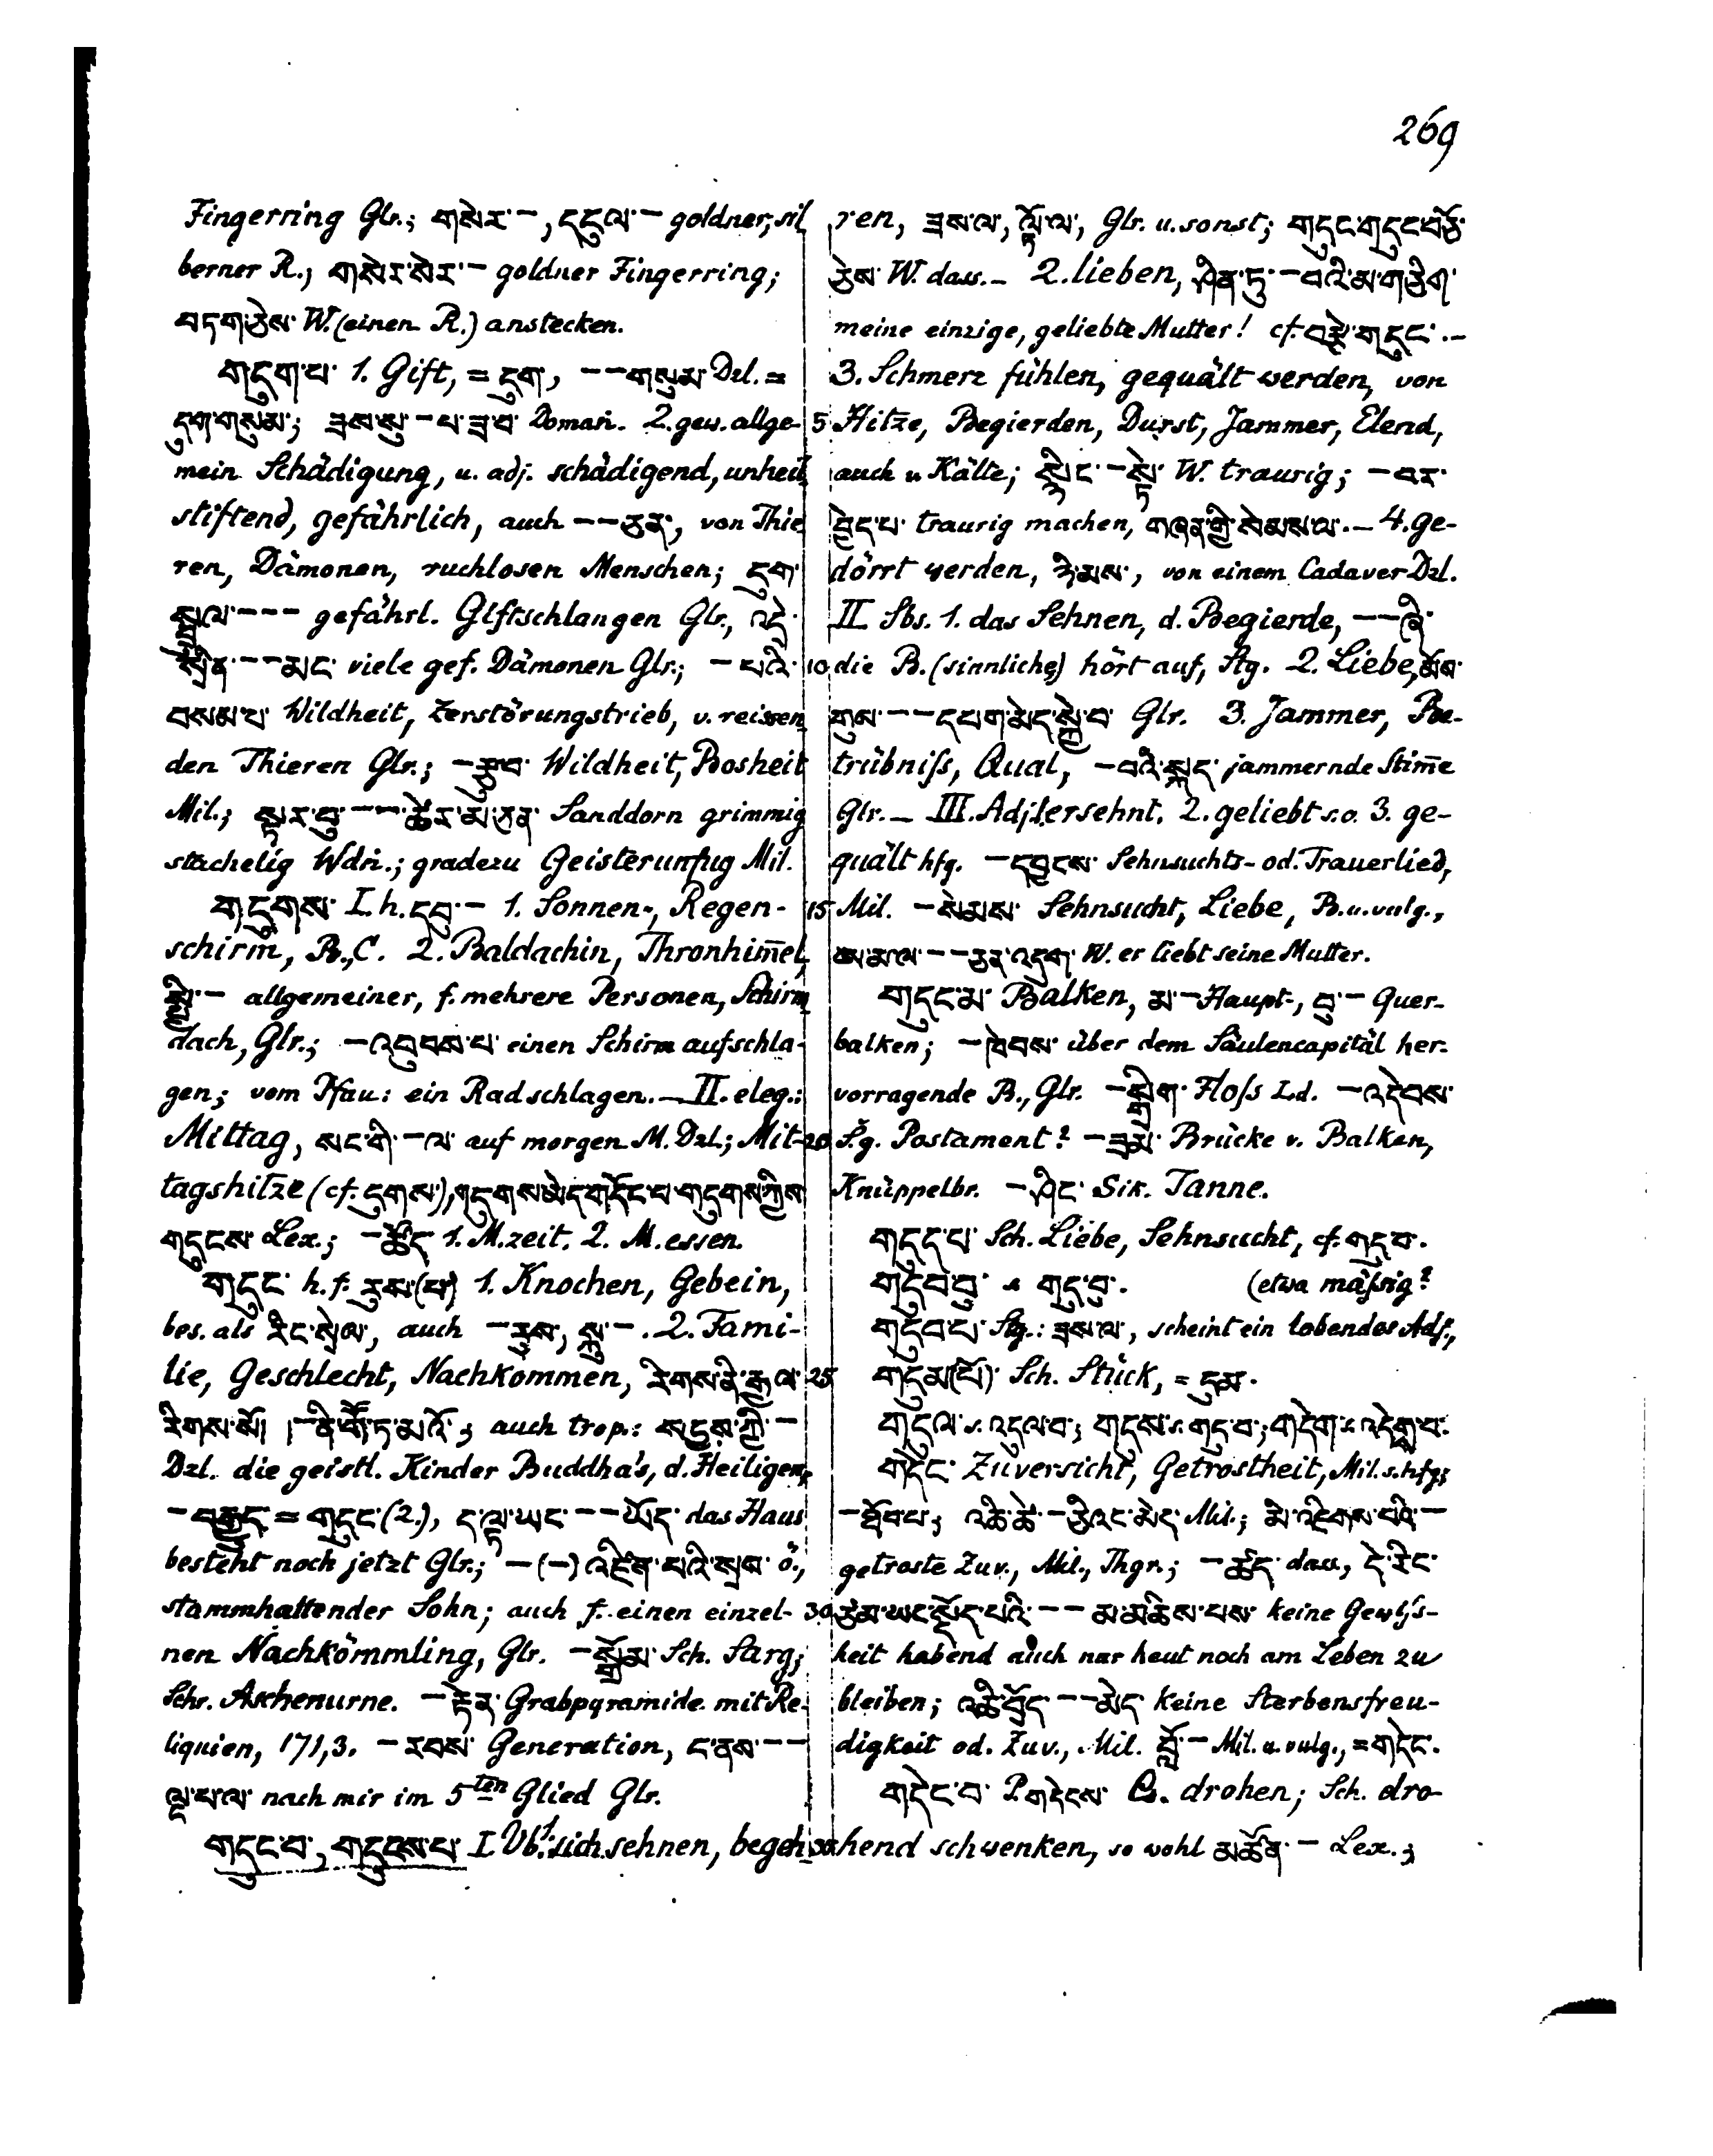 269
Fingerring Glr.; གསེར་ –, དངུལ་ – goldner, sil
berner R.; གསེར་སེར་ – goldner Fingerring;
བདག་ཅེས་ W. (einen R.) anstecken.
གདུག་པ་ 1. Gift, = དུག་, – – གསུམ་ Dzl. =
དུག་གསུམ་; ཟས་སུ་ – པ་ཟ་བ་ Doman. 2. gew. allge-
mein Schädigung, u. adj. schädigend, unheil
stiftend, gefährlich, auch – – ཅན་, von Thie
ren, Dämonen, ruchlosen Menschen; དུག་
སྦྲུལ་ – – – gefährl. Giftschlangen Glr., འདྲེ་
སྲིན་ – – མང་ viele gef. Dämonen Glr.; – པའི་
བསམ་པ་ Wildheit, Zerstörungstrieb, v. reissen
den Thieren Glr.; – རྩུབ་ Wildheit, Bosheit
Mil.; སྟར་བུ་ – – ཚེར་མ་ཅན་ Sanddorn grimmig
stachelig Wdn.; gradezu Geisterunfug Mil.
གདུགས་ I. h. དབུ་ – 1. Sonnen-, Regen-
schirm, B., C. 2. Baldachin, Thronhim̄el,
སྤྱི་ – allgemeiner, f. mehrere Personen, Schirm
dach, Glr.; – འབུབས་པ་ einen Schirm aufschla-
gen; vom Pfau: ein Rad schlagen. – II. eleg.:
Mittag, སང་གི་ – ལ་ auf morgen M. Dzl.; Mit-
tagshitze (cf. དུགས་), གདུགས་མེད་གདོང་པ་གདུགས་ཀྱིས་
གདུངས་ Lex.; – ཚོད་ 1. M.zeit. 2. M.essen.
གདུང་ h. f. རུས་(པ) 1. Knochen, Gebein,
bes. als རིང་སྲེལ་, auch – རུས་, སྐུ་ –. 2. Fami-
lie, Geschlecht, Nachkommen, རིགས་ནི་རྒྱལ་
རིགས་སོ། །– ནི་གོ་ཏ་མའོ་; auch trop.: སངྱས་ཀྱི་ –
Dzl. die geistl. Kinder Buddha's, d. Heiligen,
– བརྒྱུད་ = གདུང་ (2.), ད་ལྟ་ཡང་ – – ཡོད་ das Haus
besteht noch jetzt Glr.; – (–) འཛིན་པའི་སྲས་ ö.,
stammhaltender Sohn; auch f. einen einzel-
nen Nachkömmling, Glr. – སྒྲོམ་ Sch. Sarg;
Schr. Aschenurne. – རྟེན་ Grabpyramide mit Re-
liquien, 171,3. – རབས་ Generation, ང་ནས་ – –
ལྔ་པ་ལ་ nach mir im 5ten Glied Glr.
གདུང་བ་, གདུངས་པ་ I Vb. 1. sich sehnen, begeh
ren, ཟས་ལ་, ལྟོ་ལ་, Glr. u. sonst; གདུང་གདུང་བཅོ་
ཅེས་ W. dass. – 2. lieben, ཤིན་ཏུ་ – བའི་མ་གཅིག་
meine einzige, geliebte Mutter! cf. བརྩེ་གདུང་. –
3. Schmerz fühlen, gequält werden, von
5 Hitze, Begierden, Durst, Jammer, Elend,
auch v. Kälte; སྙིང་ – སྟེ་ W. traurig; – བར་
བྱེད་པ་ traurig machen, གཞན་གྱི་སེམས་ལ་. – 4. ge-
dörrt werden, ཉམས་, von einem Cadaver Dzl.
II Sbs. 1. das Sehnen, d. Begierde, – – ཞི་
10 die B. (sinnliche) hört auf, Stg. 2. Liebe, མོས་
གུས་ – – དཔག་མེད་སྐྱེ་བ་ Glr. 3. Jammer, Be-
trübniſs, Qual, – བའི་སྐད་ jammernde Stim̄e
Glr. – III. Adj. 1. ersehnt. 2. geliebt s. o. 3. ge-
quält hfg. – དབྱངས་ Sehnsuchts- od. Trauerlied,
15 Mil. – སེམས་ Sehnsucht, Liebe, B. u. vulg.,
ཨ་མ་ལ་ – – ཅན་འདུག་ W. er liebt seine Mutter.
གདུང་མ་ Balken, མ་ – Haupt-, བུ་ – Quer-
balken; – ཁེབས་ über dem Säulencapitäl her-
vorragende B., Glr. – སྒྲིག་ Floſs Ld. – འདེབས་
20 S.g. Postament? – ཟམ་ Brücke v. Balken,
Knüppelbr. – ཤིང་ Sik. Tanne.
གདུད་པ་ Sch. Liebe, Sehnsucht, cf. གདུ་བ་.
གདུབ་བུ་ s. གདུ་བུ་. (etwa mäſsig?
གདུབ་པ་ Stg.: ཟས་ལ་, scheint ein lobendes Adj.,
25 གདུམ(པོ)་ Sch. Stück, = དུམ་.
གདུལ་ s. འདུལ་བ་; གདུས་ s. གདུ་བ་; གདེག་ s. འདེགྲ་བ་.
གདེང་ Zuversicht, Getrostheit, Mil. s. hfg;
– ཐོབ་པ་; འཆི་ཚེ་ – ཅིའང་མེད་ Mil.; མི་འཇིགས་པའི་ –
getroste Zuv., Mil., Thgr.; – ཚོད་ dass., དེ་རིང་
30 ཙམ་ཡང་སྡོད་པའི་ – – མ་མཆིས་པས་ keine Gewiſs-
heit habend auch nur heut noch am Leben zu
bleiben; འཆི་བྲོད་ – – མེད་ keine Sterbensfreu-
digkeit od. Zuv., Mil. བློ་ – Mil. u. vulg., = གདེང་.
གདེང་བ་ P. གདེངས་ B. drohen; Sch. dro-
hend schwenken, so wohl མཚོན་ – Lex.;